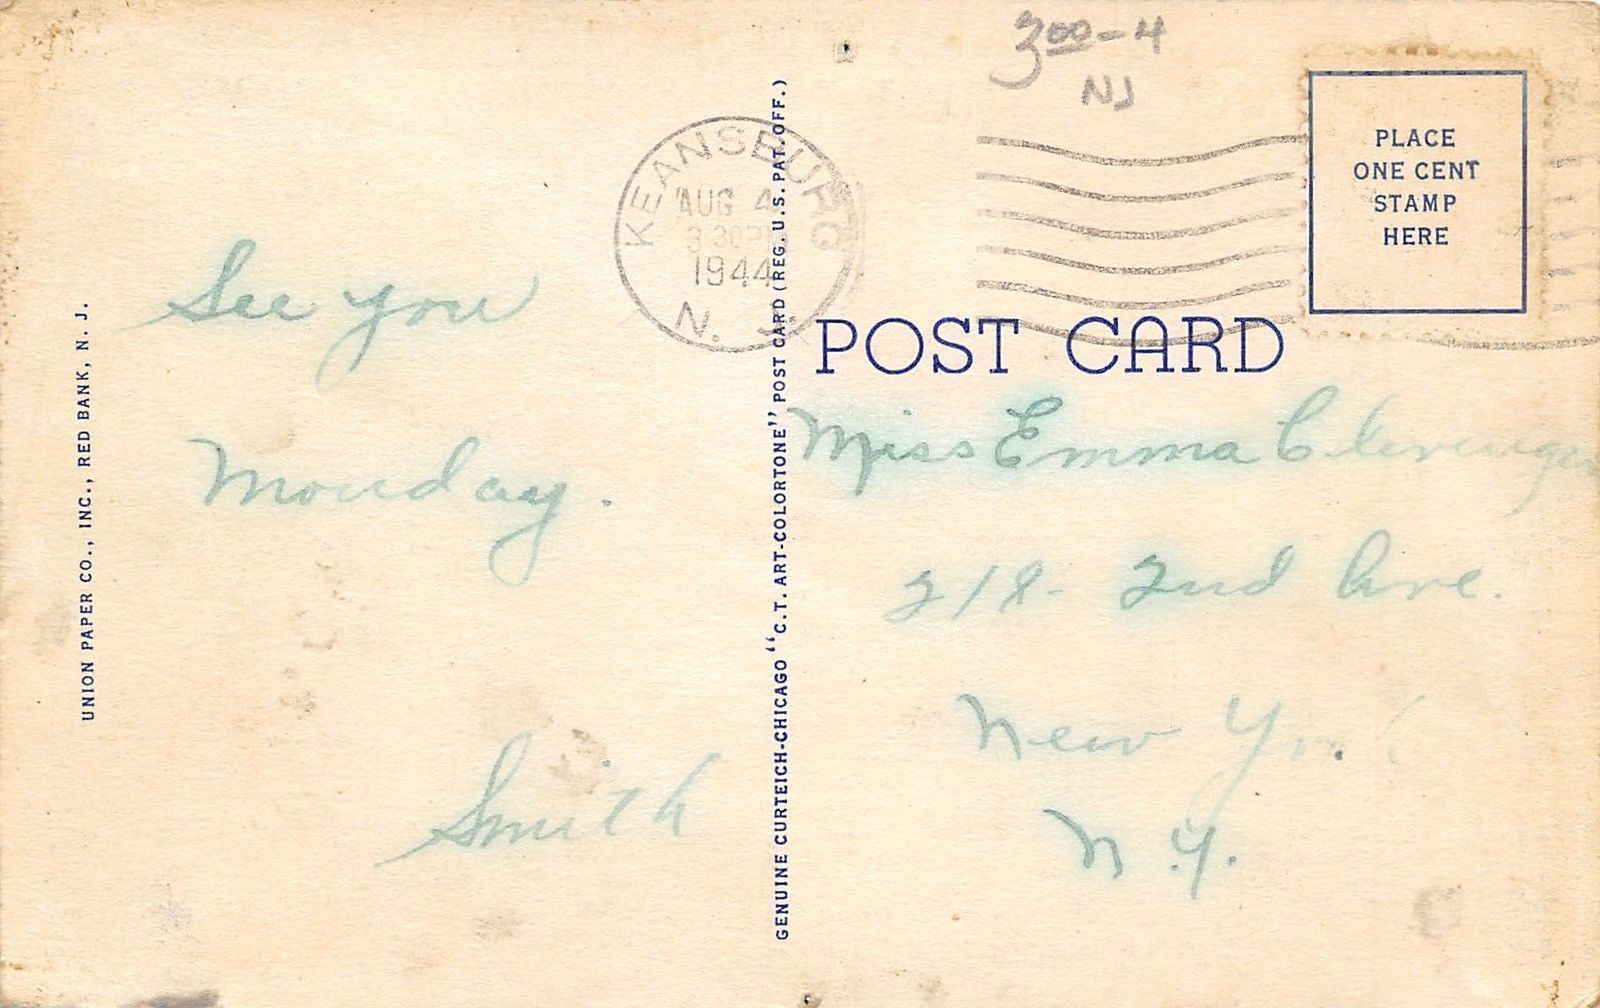 3⁰⁰-4
NJ
KEANSBURG
AUG 4
3 30 PM
1944
N. J.
PLACE
ONE CENT
STAMP
HERE
POST CARD
See you
Monday.
Smith
Miss Emma
218- 2nd Ave.
New York
N.Y.
UNION PAPER CO., INC., RED BANK, N. J.
GENUINE CURTEICH-CHICAGO "C.T. ART-COLORTONE" POST CARD (REG. U.S. PAT. OFF.)